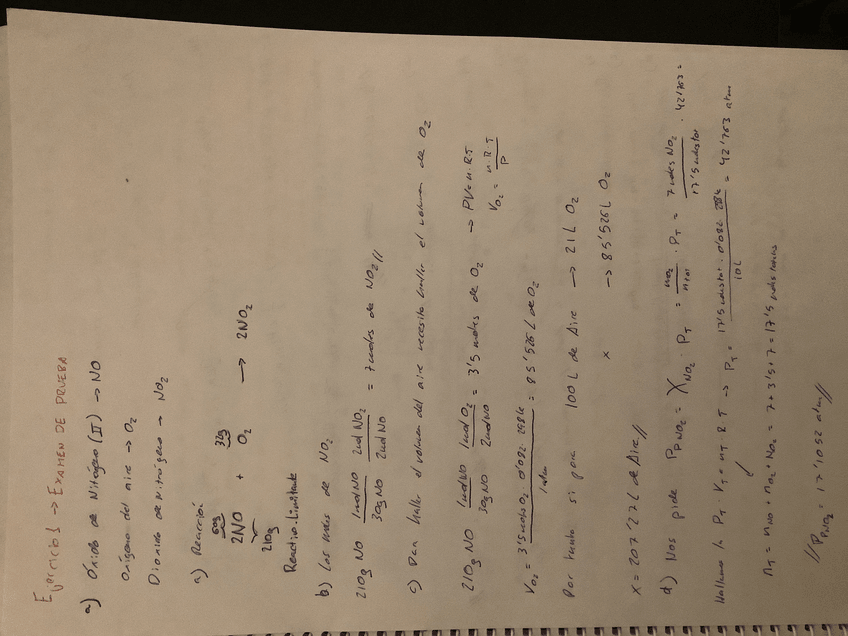 Ejercicio 1 → EXAMEN DE PRUEBA
a) Óxido de Nitrógeno (II) → NO
Oxígeno del aire → O₂
Dióxido de Nitrógeno → NO₂
a) Reacción
60g 32g
2NO + O₂ → 2NO₂
210g
Reactivo Limitante
b) Los moles de NO₂
210g NO 1mol NO/30g NO 2mol NO₂/2mol NO = 7 moles de NO₂//
c) Para hallar el volumen del aire necesito hallar el volumen de O₂
210g NO 1mol NO/30g NO 1mol O₂/2mol NO = 3'5 moles de O₂ → PV = n·R·T
V_O₂ = n·R·T/P
V_O₂ = 3'5 moles O₂ · 0'082 · 298k/1 atm = 85'526 L de O₂
Por tanto si para 100 L de Aire → 21 L O₂
x → 85'526 L O₂
x = 407'27 L de Aire//
d) Nos pide P_PNO₂ = X_NO₂ · P_T = n_NO₂/n_tot · P_T = 7 moles NO₂/17'5 moles tot · 42'763 =
Hallamos la P_T · V_T = n_T · R T → P_T = 17'5 moles tot · 0'082 · 298k/10 L = 42'763 atm
n_T = n_NO + n_O₂ + n_NO₂ = 7 + 3'5 + 7 = 17'5 moles totales
//P_PNO₂ = 17'1052 atm//